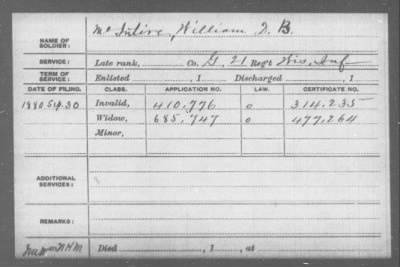 NAME OF SOLDIER: Mc Intire, William D. B.
SERVICE: Late rank, Co. G, 21 Reg't Wis. Inf
TERM OF SERVICE: Enlisted , 1 Discharged , 1
DATE OF FILING. CLASS. APPLICATION NO. LAW. CERTIFICATE NO.
1880 Sep. 30 Invalid, 410,776 o 314,235
Widow, 685,747 o 477,264
Minor,
ADDITIONAL SERVICES:
REMARKS:
Died , 1 , at